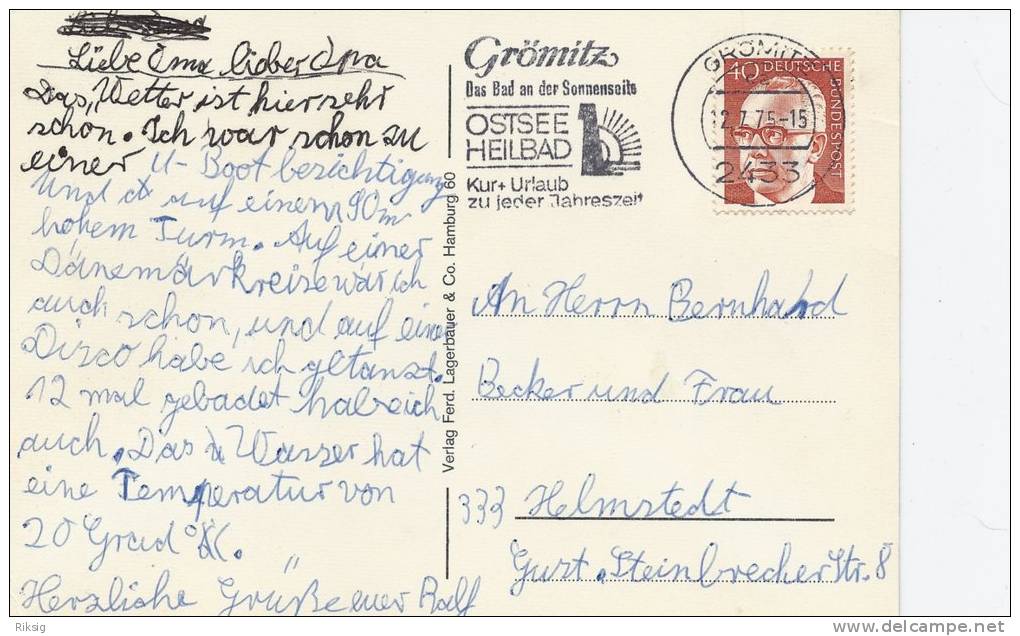 Liebe Oma, lieber Opa
Das, Wetter ist hier sehr
schön. Ich war schon zu
einer U-Boot bezichtigung
und auf einem 90m
hohem Turm. Auf einer
Dänemärkreise war ich
auch schon, und auf einer
Disco habe ich getanzt.
12 mal gebadet habe ich
auch. Das Wasser hat
eine Temperatur von
20 Grad °C.
Herzliche Grüße euer Ralf
Verlag Ferd. Lagerbauer & Co. Hamburg 60
Grömitz
Das Bad an der Sonnenseite
OSTSEE
HEILBAD
Kur + Urlaub
zu jeder Jahreszeit
GRÖMITZ
12.7.75-15
2433
40 DEUTSCHE
BUNDESPOST
An Herrn Bernhard
Becker und Frau
333 Helmstedt
Gust. Steinbrecher Str. 8
Riksig
http://www.delcampe.net